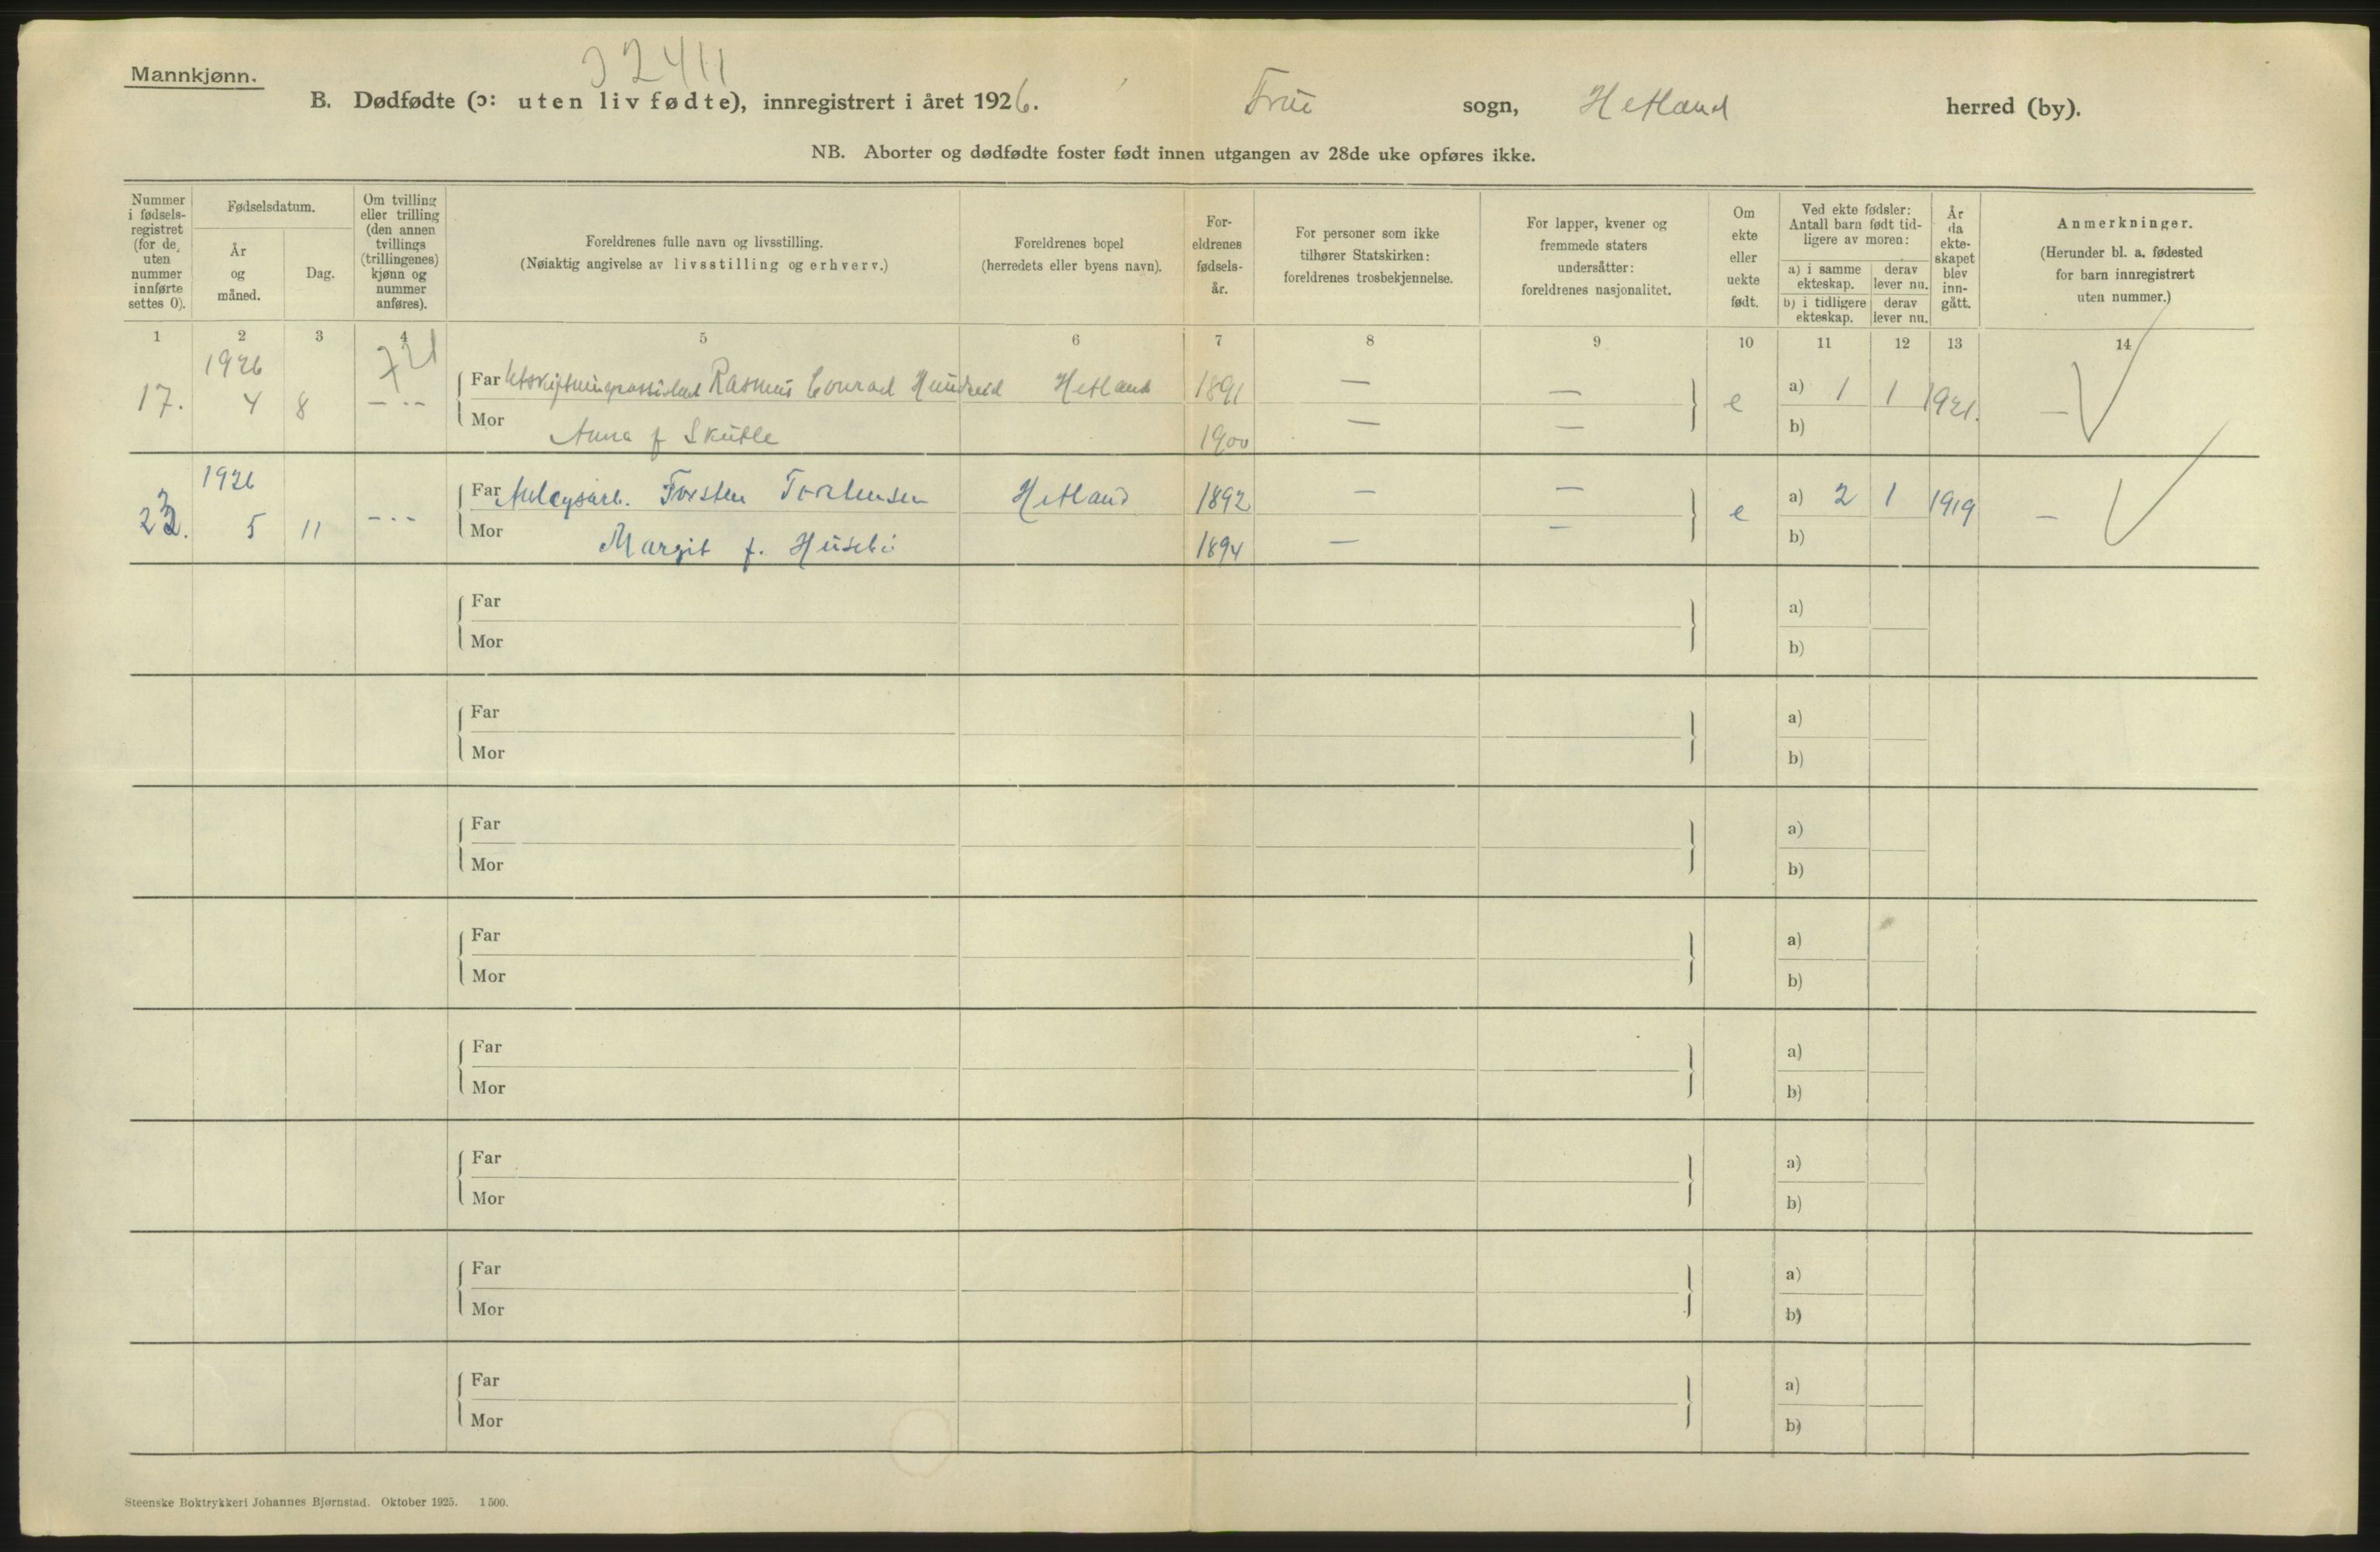 Mannkjønn.
2411
B. Dødfødte (ɔ: uten liv fødte), innregistrert i året 1926. Frue sogn, Hetland herred (by).
NB. Aborter og dødfødte foster født innen utgangen av 28de uke opføres ikke.
Nummer i fødsels- registret (for de uten nummer innførte settes 0).
Fødselsdatum.
År og måned.
Dag.
Om tvilling eller trilling (den annen tvillings (trillingenes) kjønn og nummer anføres).
Foreldrenes fulle navn og livsstilling.
(Nøiaktig angivelse av livsstilling og erhverv.)
Foreldrenes bopel
(herredets eller byens navn).
For- eldrenes fødsels- år.
For personer som ikke tilhører Statskirken: foreldrenes trosbekjennelse.
For lapper, kvener og fremmede staters undersåtter: foreldrenes nasjonalitet.
Om ekte eller uekte født.
Ved ekte fødsler: Antall barn født tid- ligere av moren:
a) i samme ekteskap.
derav lever nu.
b) i tidligere ekteskap.
derav lever nu.
År da ekte- skapet blev inn- gått.
Anmerkninger.
(Herunder bl. a. fødested for barn innregistrert uten nummer.)
1 2 3 4 5 6 7 8 9 10 11 12 13 14
1926
17. 4 8 - -- Far Utskiftningsassistent Rasmus Conrad Hetland 1891 — — e a) 1 1 1921. —
Mor Anna f Skutle 1900 — — b)
1926
23. 5 11 - -- Far Anlegsarb. Torsten Torstensen Hetland 1892 — — e a) 2 1 1919 —
Mor Margit f. Husebø 1894 — — b)
Far a)
Mor b)
Far a)
Mor b)
Far a)
Mor b)
Far a)
Mor b)
Far a)
Mor b)
Far a)
Mor b)
Far a)
Mor b)
Far a)
Mor b)
Steenske Boktrykkeri Johannes Bjørnstad. Oktober 1925. 1 500.